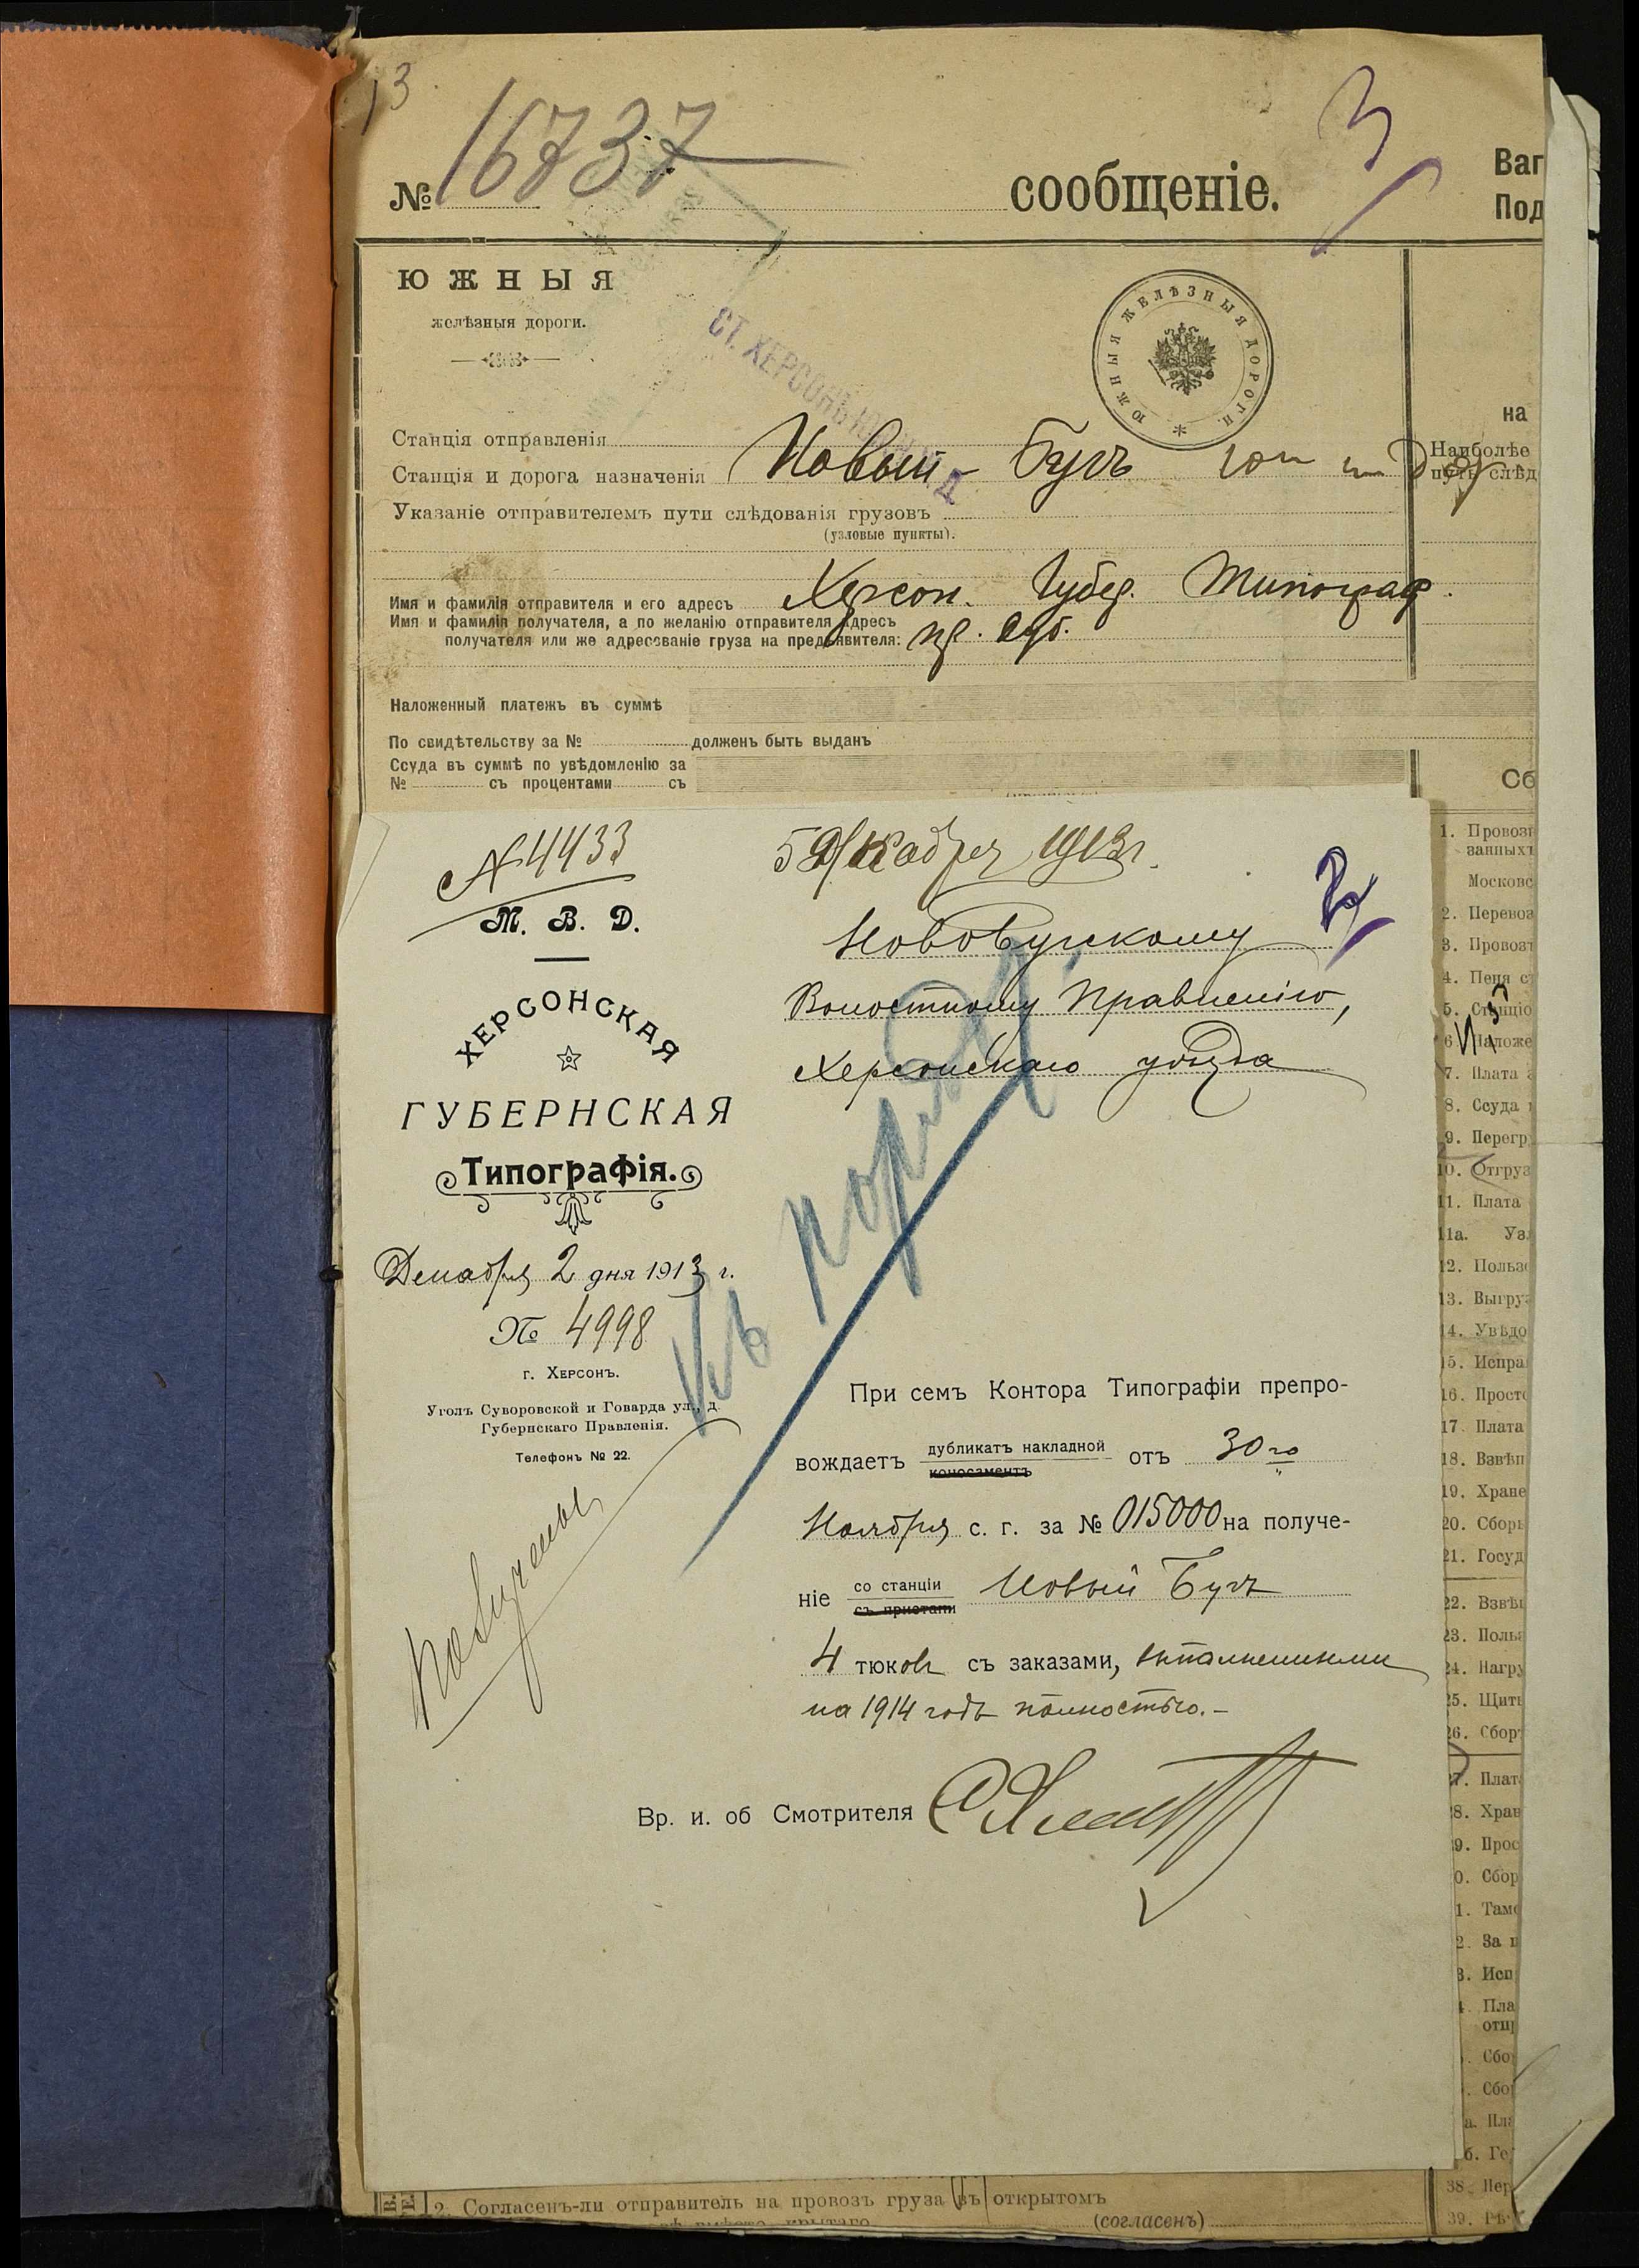 13
№ 16737 сообщеніе.
3
Ваг
Под
ЮЖНЫЯ
желѣзныя дороги.
ЮЖНЫЯ ЖЕЛѢЗНЫЯ ДОРОГИ.
СТ. ХЕРСОНЪ
на
Станція отправленія
Наиболѣе
Станція и дорога назначенія Новый-Бугъ
путь слѣд
Указаніе отправителемъ пути слѣдованія грузовъ
(узловые пункты).
Имя и фамилія отправителя и его адресъ Херсон. Губер. Типограф.
Имя и фамилія получателя, а по желанію отправителя адресъ
получателя или же адресованіе груза на предъявителя: пр. дуб.
Наложенный платежъ въ суммѣ
По свидѣтельству за № должень быть выданъ
Ссуда въ суммѣ по увѣдомленію за
№ съ процентами съ
Сб
№ 4433
5 Декабря 1913 г.
М. В. Д.
ХЕРСОНСКАЯ
ГУБЕРНСКАЯ
Типографія.
Декабря 2 дня 1913 г.
№ 4998
г. Херсонъ.
Уголъ Суворовской и Говарда ул., д.
Губернскаго Правленія.
Телефонъ № 22.
Новобугскому
Волостному Правленію,
Херсонскаго уѣзда
Къ
При семъ Контора Типографіи препро-
вождаетъ дубликатъ накладной отъ 30го
коносаментъ
Ноября с. г. за № 015000 на получе-
ніе со станціи Новый Бугъ
съ пристани
4 тюковъ съ заказами, выполненными
на 1914 годъ полностью.-
Получены
Вр. и. об Смотрителя
1. Провозн
занныхъ
Московс
2. Перевоз
3. Провозн
4. Пеня с
5. Станціо
6. Наложе
7. Плата з
8. Ссуда
9. Перегр
10. Отгруз
11. Плата
11а. Уз
12. Пользо
13. Выгруз
14. Увѣдо
15. Испра
16. Просто
17. Плата
18. Взвѣш
19. Хране
20. Сборъ
21. Госуд
22. Взвѣш
23. Польз
24. Нагру
25. Щиты
26. Сбор
27. Плат
28. Хран
29. Прос
0. Сбор
1. Тамо
2. За п
3. Исп
Пла
отп
Сбо
Сбо
а. Пла
б. Го
38. Пер
39.
2. Согласенъ-ли отправитель на провозъ груза въ открытомъ
(согласенъ)